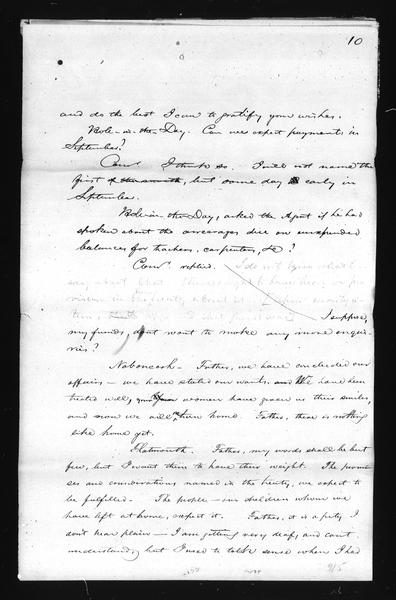 10
and do the best I can to gratify your wishes.
Hole-in-the-Day. Can we expect payments in
September?
Comr I think so. I will not name the
first of the month, but some day early in
September.
Hole-in-the-Day, asked the Agent if he had
spoken about the arrearages due on unexpended
balances for teachers, carpenters, &c?
Comr replied. I do not know what I
say about that
I suppose,
my friends, don't want to make any more enqui-
ries?
Naboncash - Father, we have concluded our
affairs - we have stated our wants. and We have been
treated well, your women have given us their smiles,
and now we will return home. Father, there is nothing
like home yet.
Flatmouth. Father, my words shall be but
few, but I want them to have their weight. The promi-
ses and considerations named in the treaty, we expect to
be fulfilled. The people - our children whom we
have left at home, expect it. Father, it is a pity I
don't hear plain - I am getting very deaf, and can't
understand, but I used to talk sense when I had